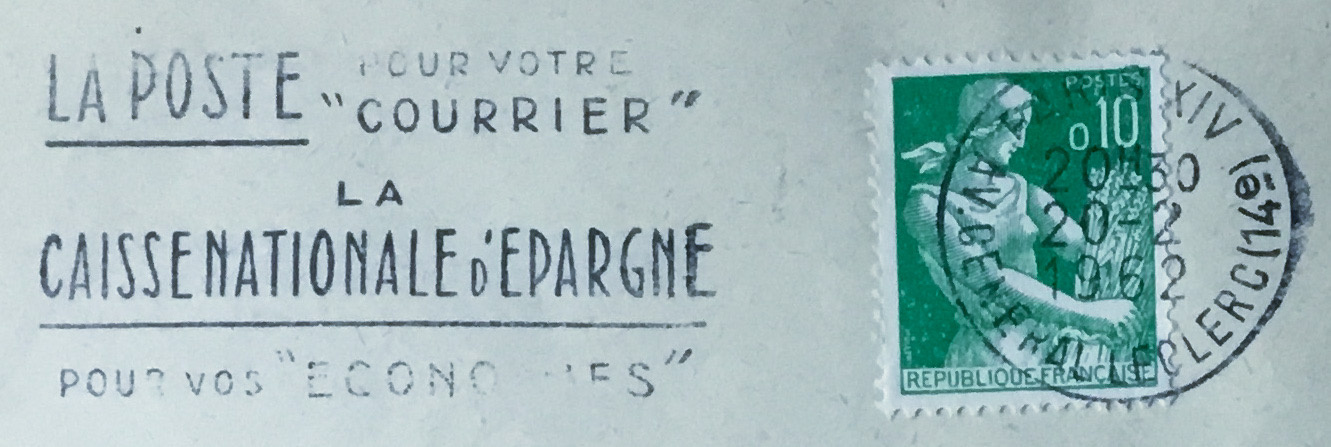 LA POSTE
POUR VOTRE
"COURRIER"
LA
CAISSE NATIONALE D'EPARGNE
POUR VOS "ECONOMIES"
POSTES
0,10
REPUBLIQUE FRANÇAISE
PARIS XIV
20H30
20-2
1962
AV. GENERAL LECLERC (14è)